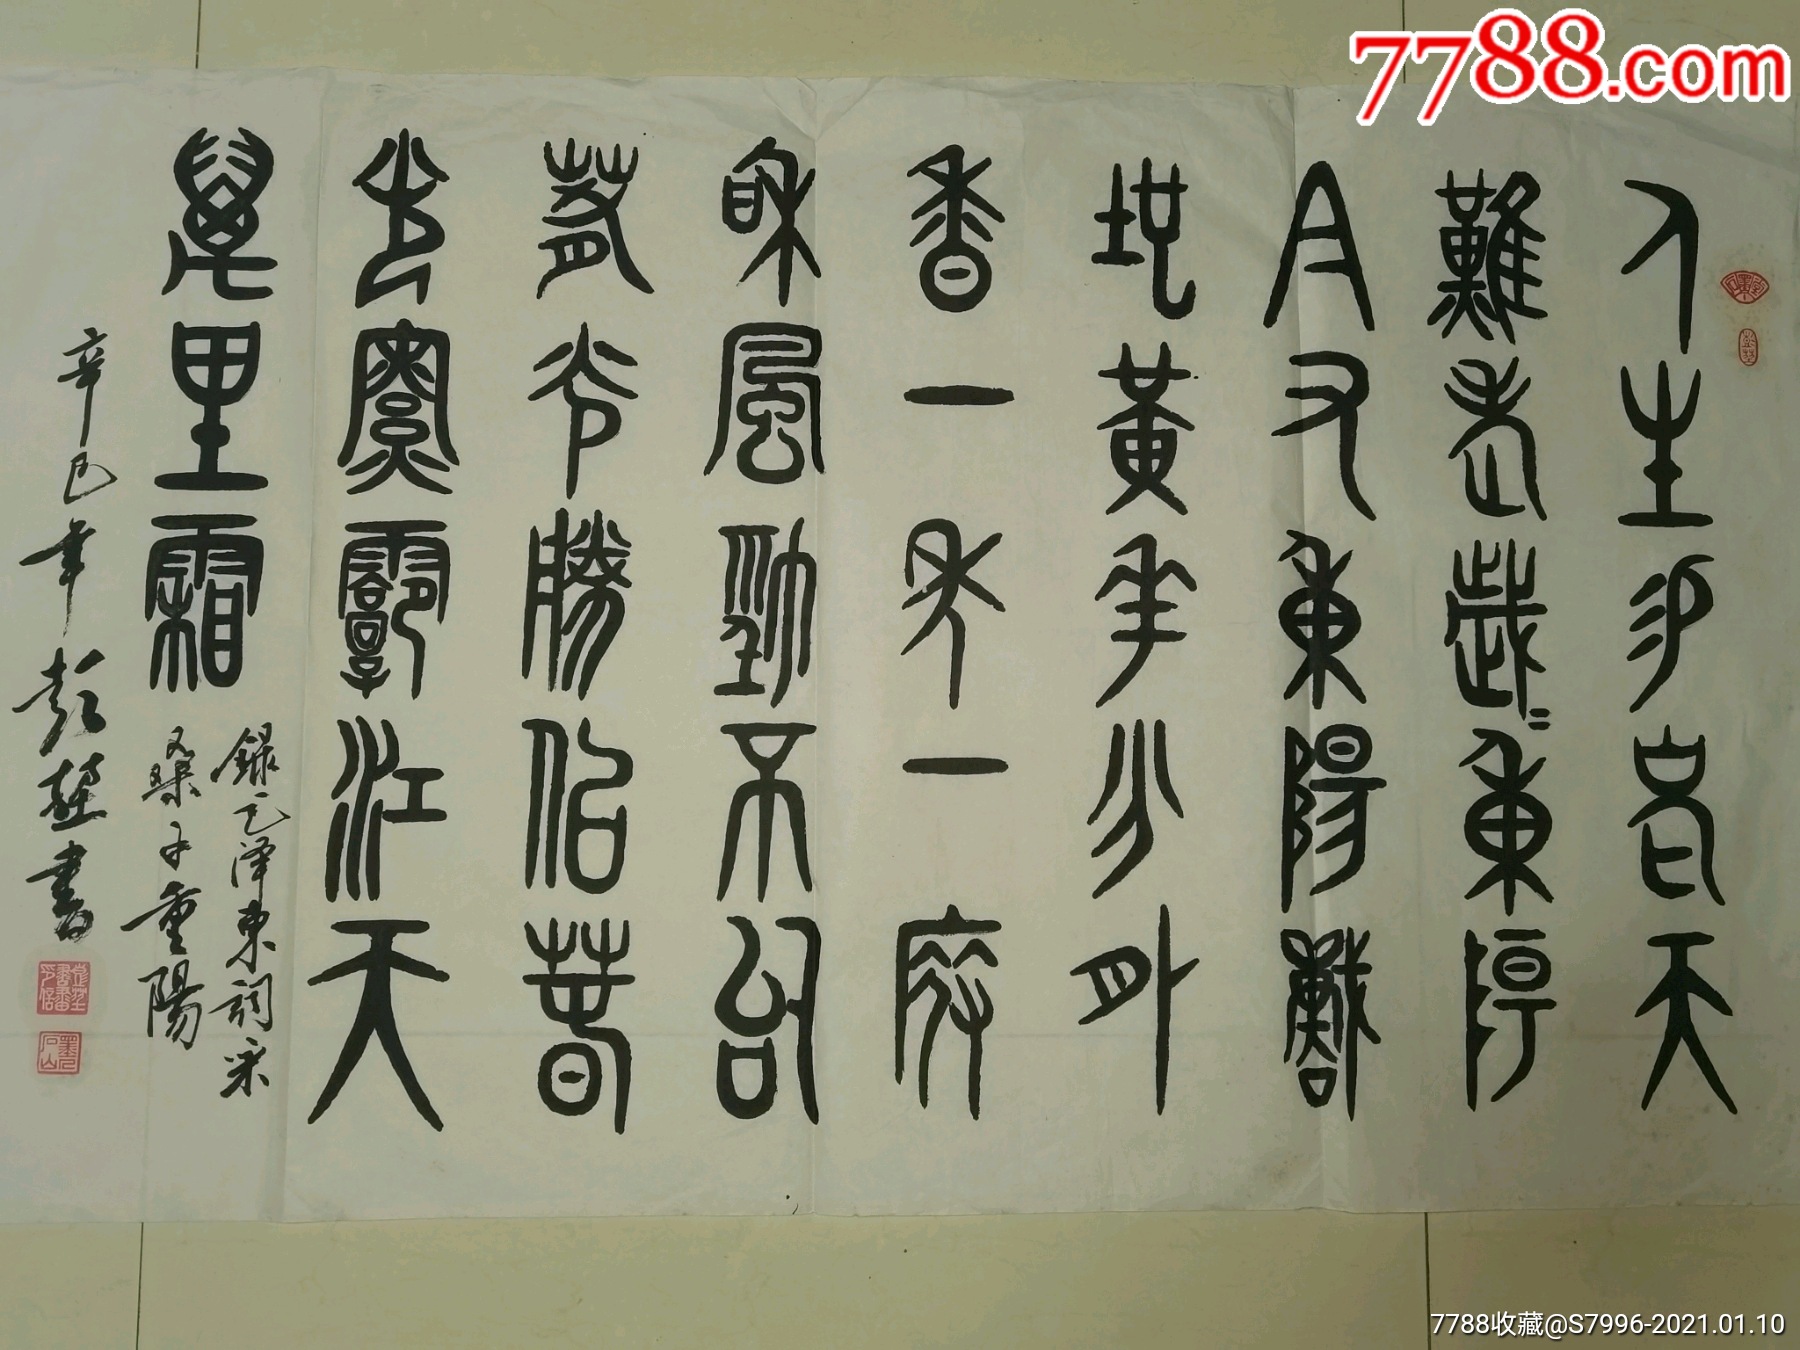 7788.com
人生易老天
難老歲〻重陽
今又重陽戰
地黃花分外
香一年一度
秋風勁不似
春光勝似春
光寥廓江天
萬里霜
錄毛泽東詞采
桑子重陽
辛巳年彭書
7788收藏@S7996-2021.01.10